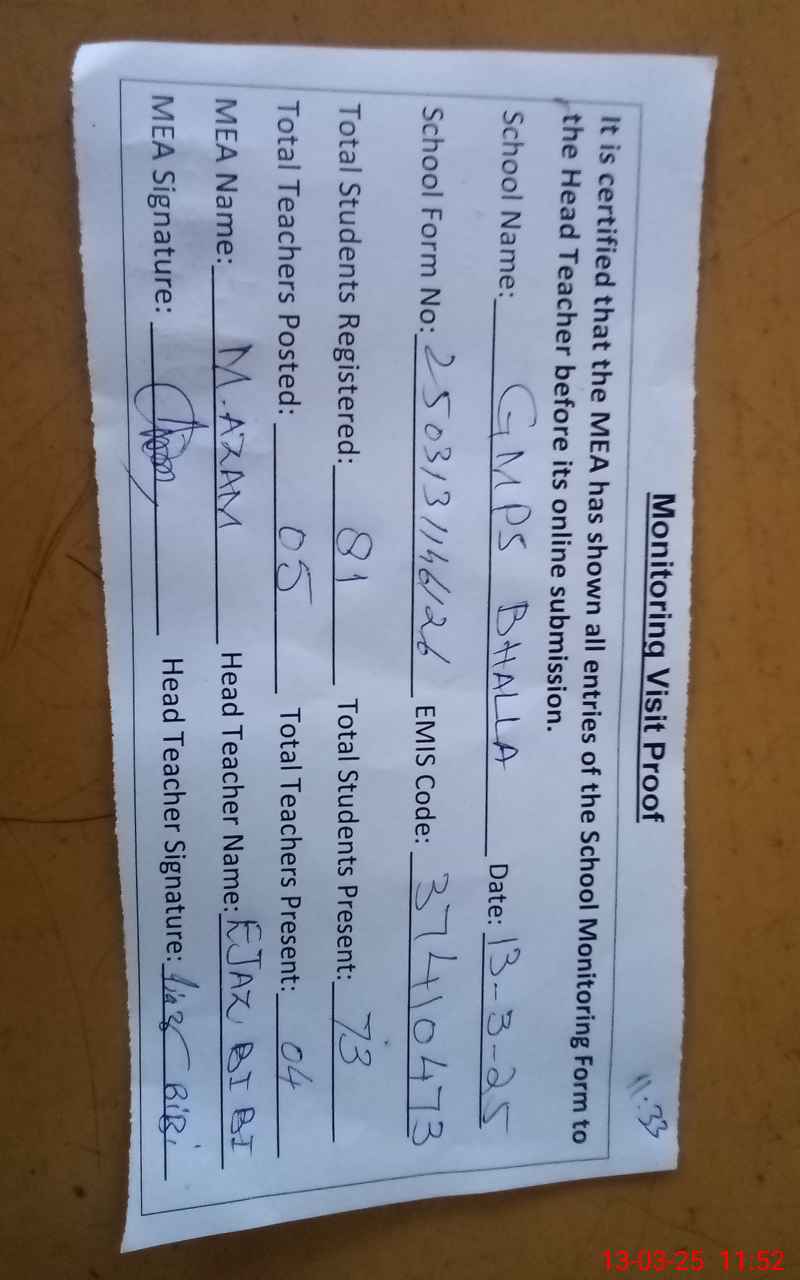 Monitoring Visit Proof
11:33
It is certified that the MEA has shown all entries of the School Monitoring Form to
the Head Teacher before its online submission.
School Name: GMPS BHALLA Date: 13-3-25
School Form No: EMIS Code: 37410473
Total Students Registered: 81 Total Students Present: 73
Total Teachers Posted: 05 Total Teachers Present: 04
MEA Name: M.AZAM Head Teacher Name: EJAZ BI BI
MEA Signature: Head Teacher Signature: BiBi
13-03-25 11:52